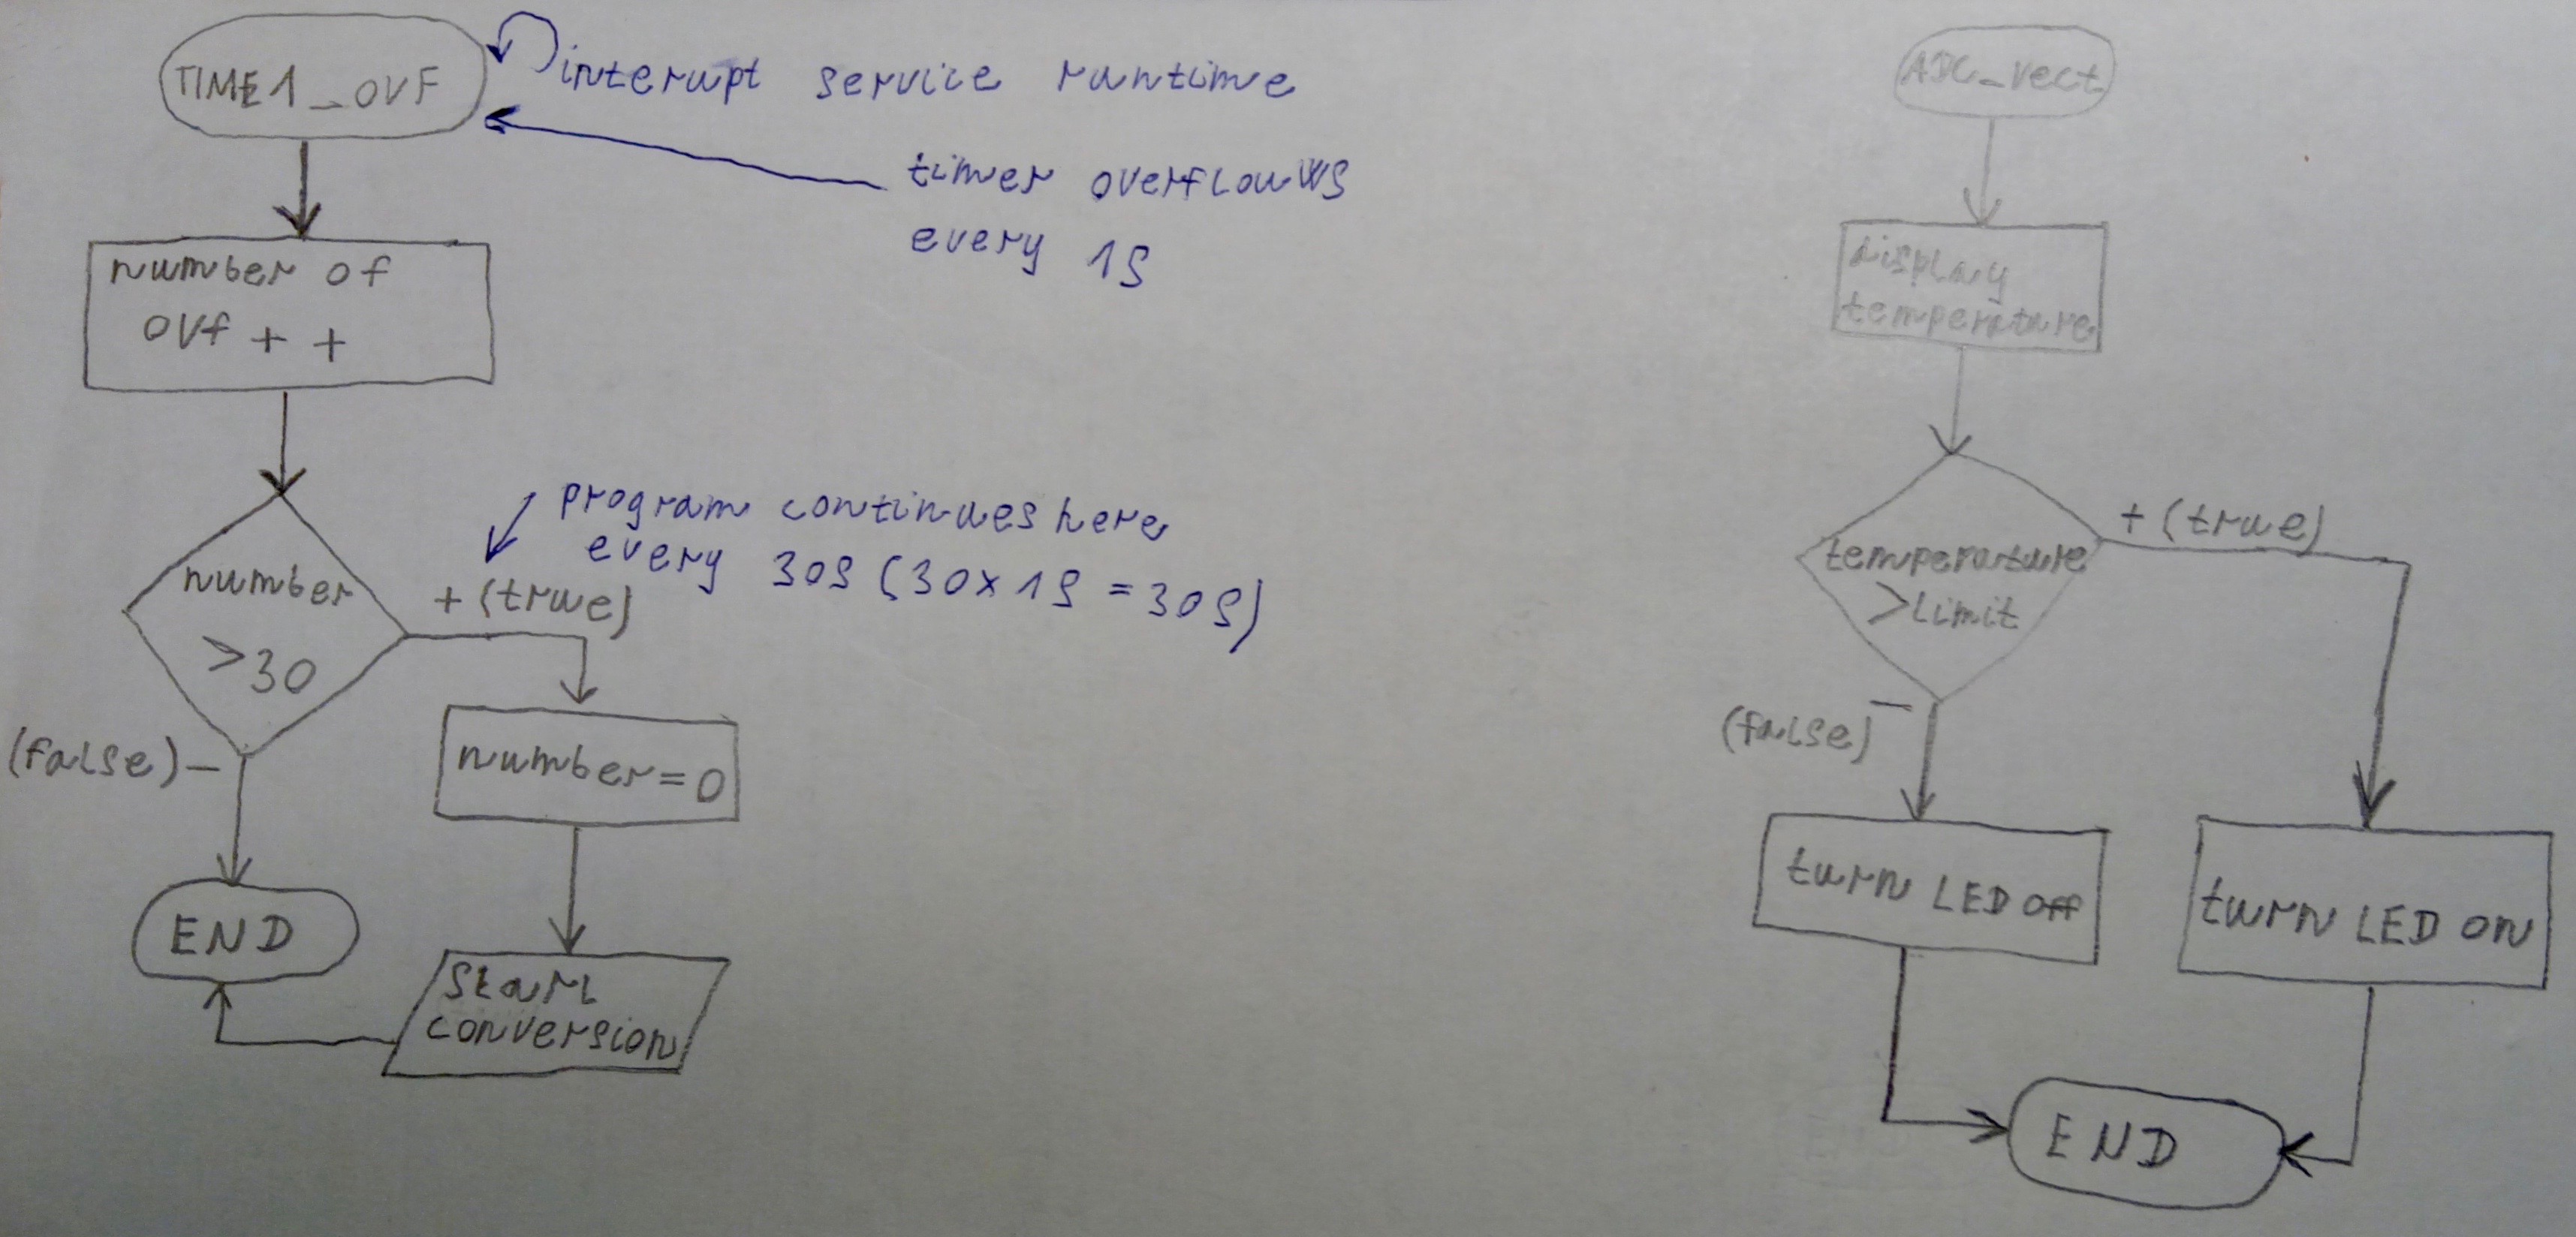 TIME1_OVF
interupt service runtime
timer overflouws
every 1s
number of
ovf + +
program continues here
every 30s (30x1s = 30s)
number
>30
+ (true)
(false) -
number=0
END
Start
conversion
ADC_vect
display
temperature
temperature
>limit
+ (true)
(false) -
turn LED off
turn LED on
END